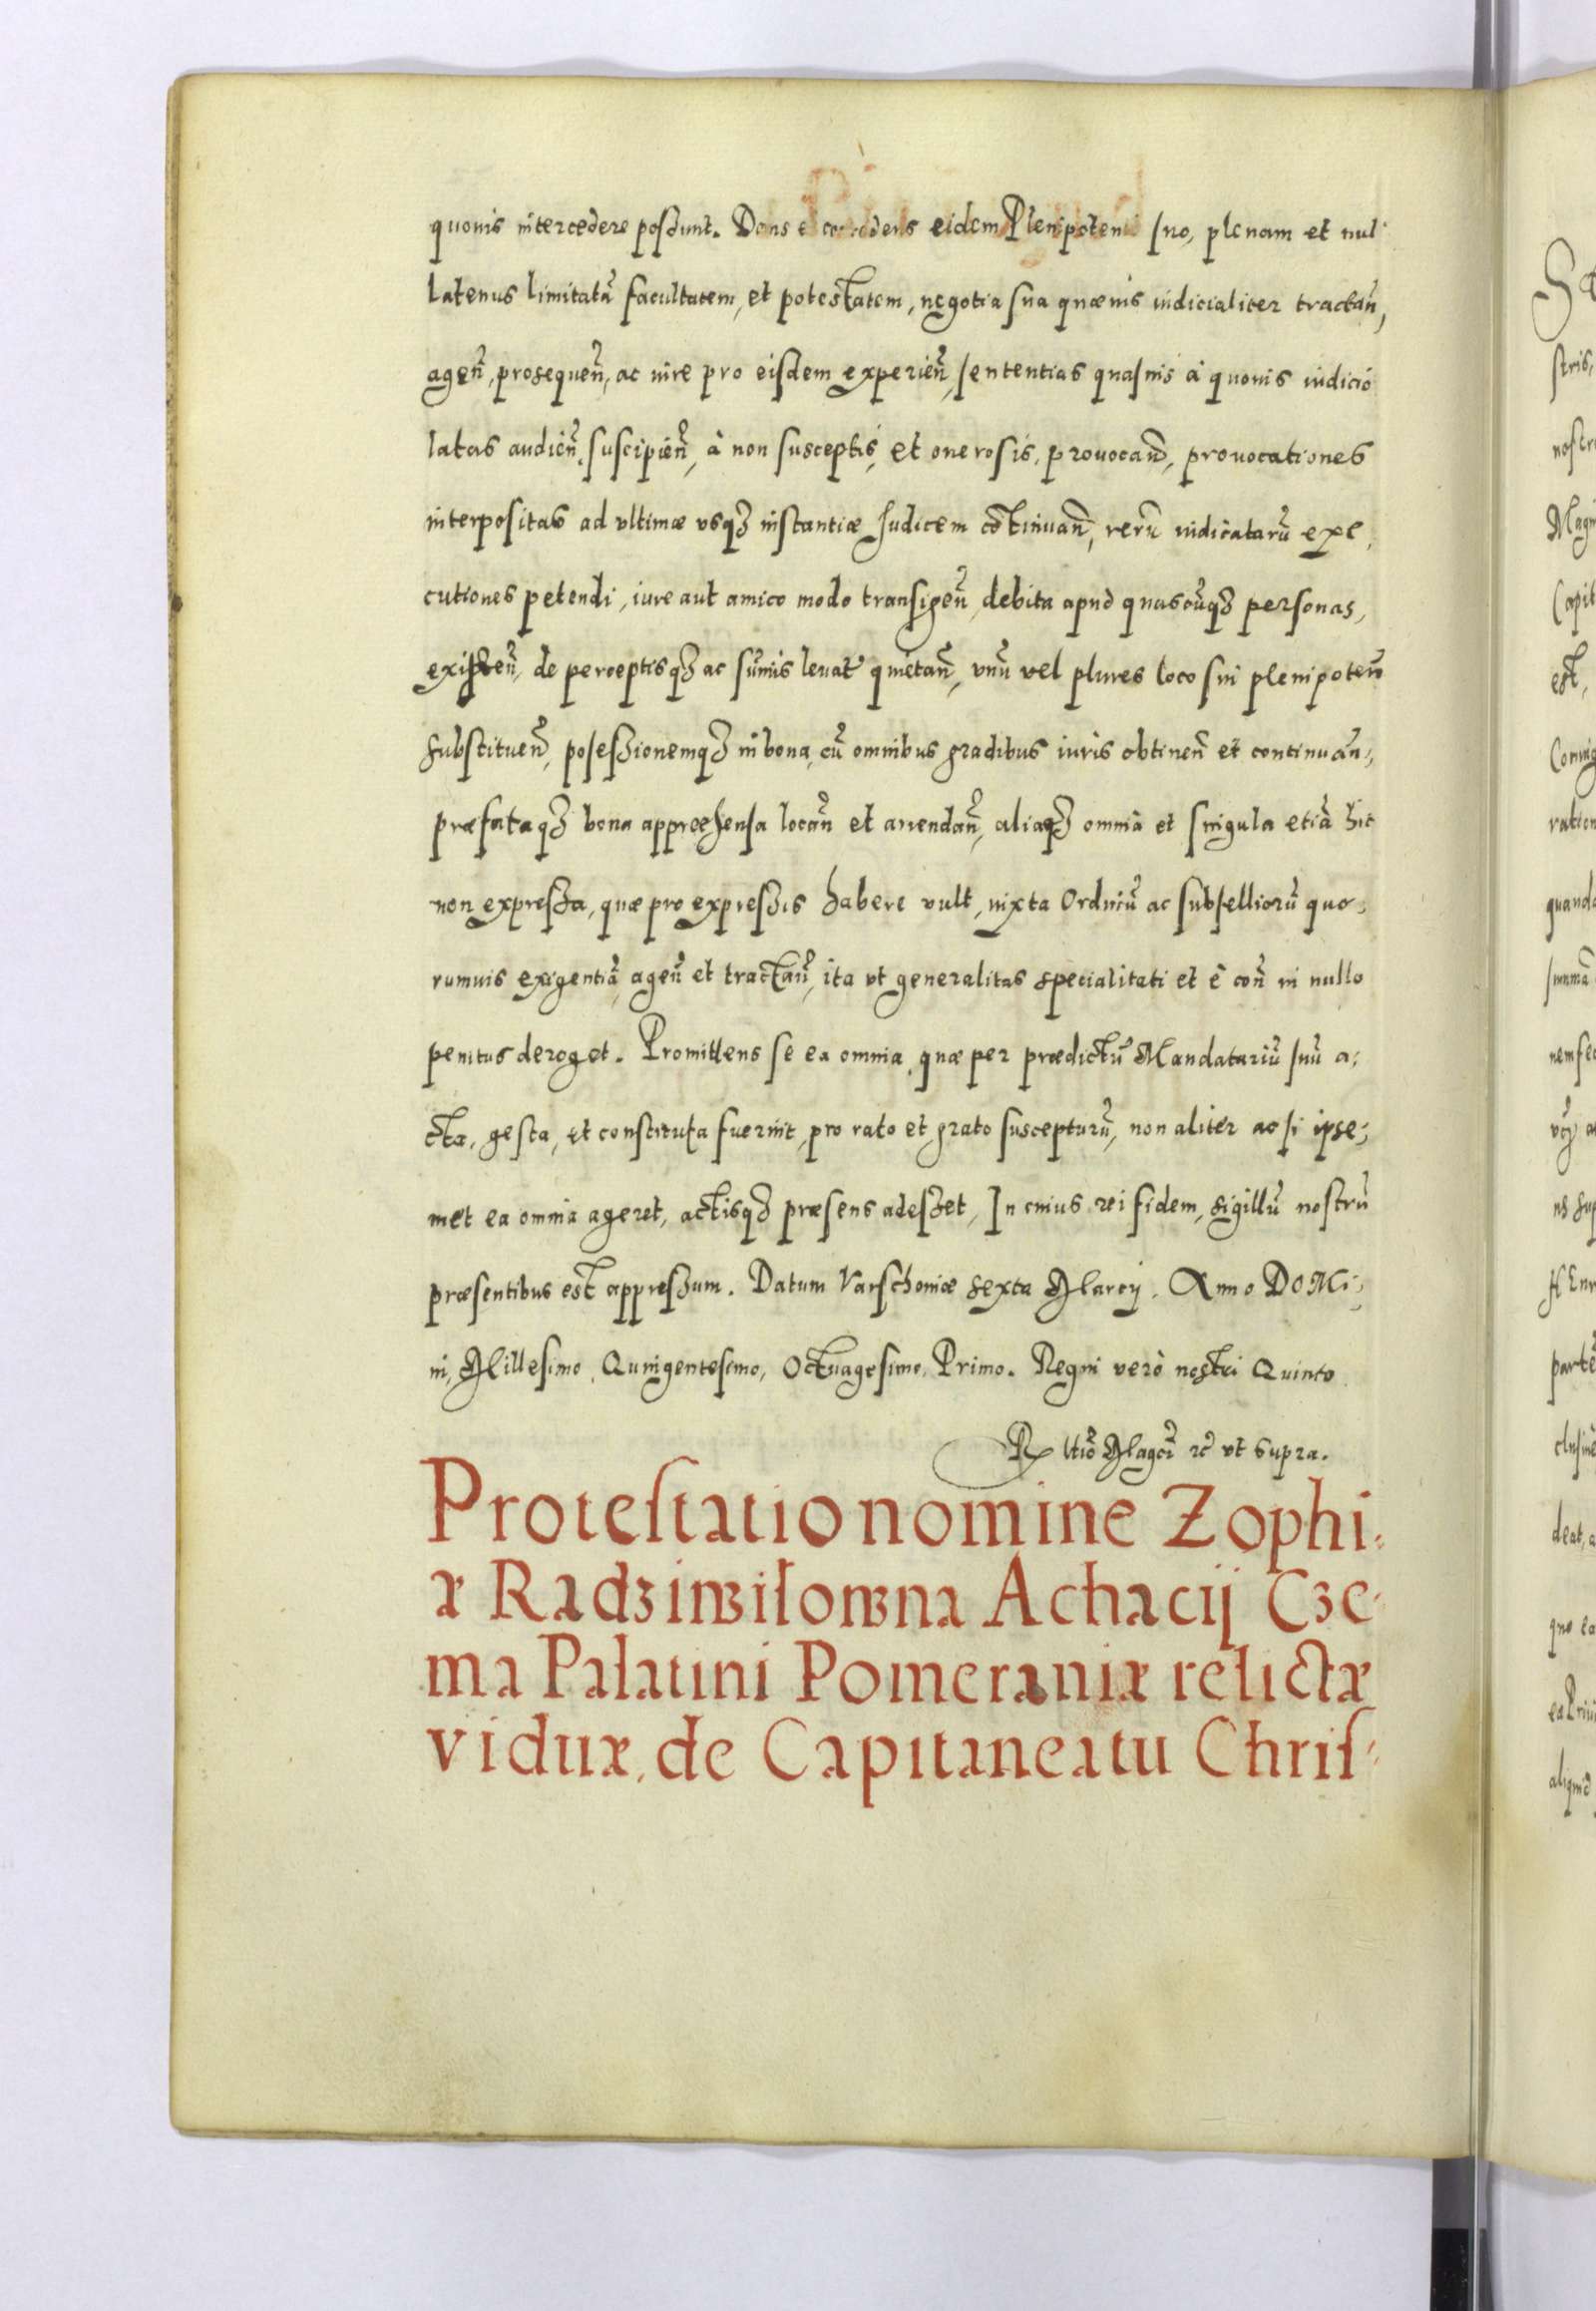 quouis intercedere possunt. Dans et concedens eidem Plenipotenti suo, plenam et nul
latenus limitatã facultatem, et potestatem, negotia sua quæuis iudicialiter tractañ,
ageñ, prosequeñ, ac iure pro eisdem experieñ, sententias quasuis à quouis iudicio
latas audieñ, suscipieñ, à non susceptis, et onerosis, prouocañ, prouocationes
interpositas ad vltimæ vsq3 instantiæ Judicem cõtinuañ, rerũ iudicatarũ exe,
cutiones petendi, iure aut amico modo transigeñ, debita apud quascũq3 personas,
exigeñ, de perceptisq3 ac sum̃is leuat̃ quietañ, vnũ vel plures loco sui plenipoteñ
substitueñ, possessionemq3 in bona, cũ omnibus gradibus iuris obtineñ et continuan̄,
præfataq3 bona appræhensa locañ et arrendañ, aliaq3 omnia et singula etiã hic
non expressa, quæ pro expressis habere vult, iuxta Ordinũ ac subselliorũ quo,
rumuis exigentiã, ageñ et tractañ, ita vt generalitas specialitati et è coñ in nullo
penitus deroget. Promittens se ea omnia, quæ per prædictũ Mandatariũ suũ a,
cta, gesta, et constituta fuerint, pro rato et grato suscepturũ, non aliter ac si ipse,
met ea omnia ageret, actisq3 præsens adesset, In cuius rei fidem, sigillũ nostrũ
præsentibus est appressum. Datum Varschouiæ sexta Marcij. Anno DOMi,
ni, Millesimo, Quingentesimo, Octuagesimo, Primo. Regni verò nostri Quinto
Rltiõ Magci rc̃ vt supra.
Protestatio nomine Zophi,
æ Radziwilowna Achacij Cze,
ma Palatini Pomeraniæ relictæ
viduæ, de Capitaneatu Chris,